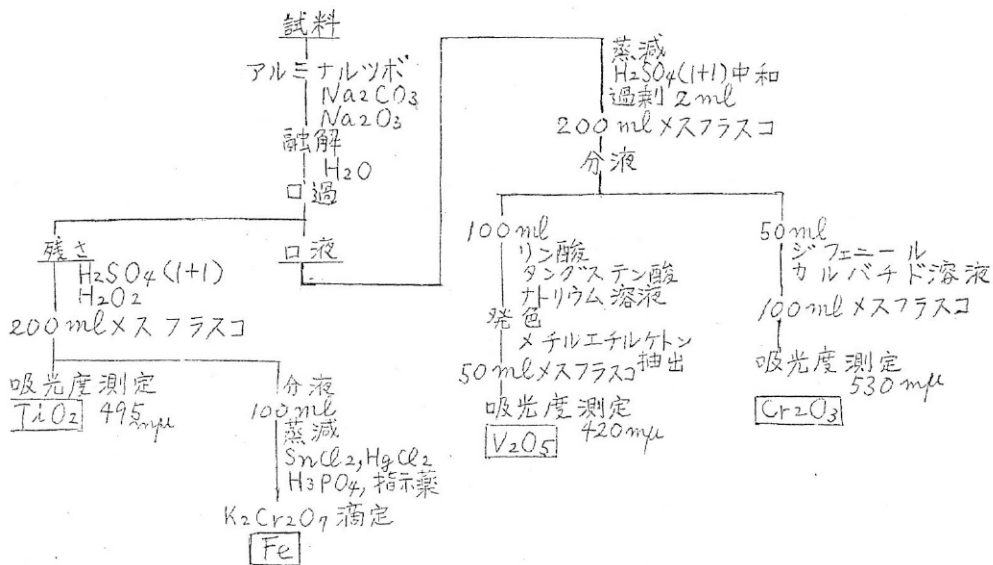 試料
アルミナルツボ
Na2CO3
Na2O3
融解
H2O
口過
残さ
H2SO4(1+1)
H2O2
200mlメスフラスコ
吸光度測定
TiO2 495mμ
分液
100ml
蒸減
SnCl2,HgCl2
H3PO4,指示薬
K2Cr2O7滴定
Fe
口液
蒸減
H2SO4(1+1)中和
過剰2ml
200mlメスフラスコ
分液
100ml
リン酸
タングステン酸
ナトリウム溶液
発色
メチルエチルケトン
抽出
50mlメスフラスコ
吸光度測定
420mμ
V2O5
50ml
ジフェニール
カルバチド溶液
100mlメスフラスコ
吸光度測定
530mμ
Cr2O3